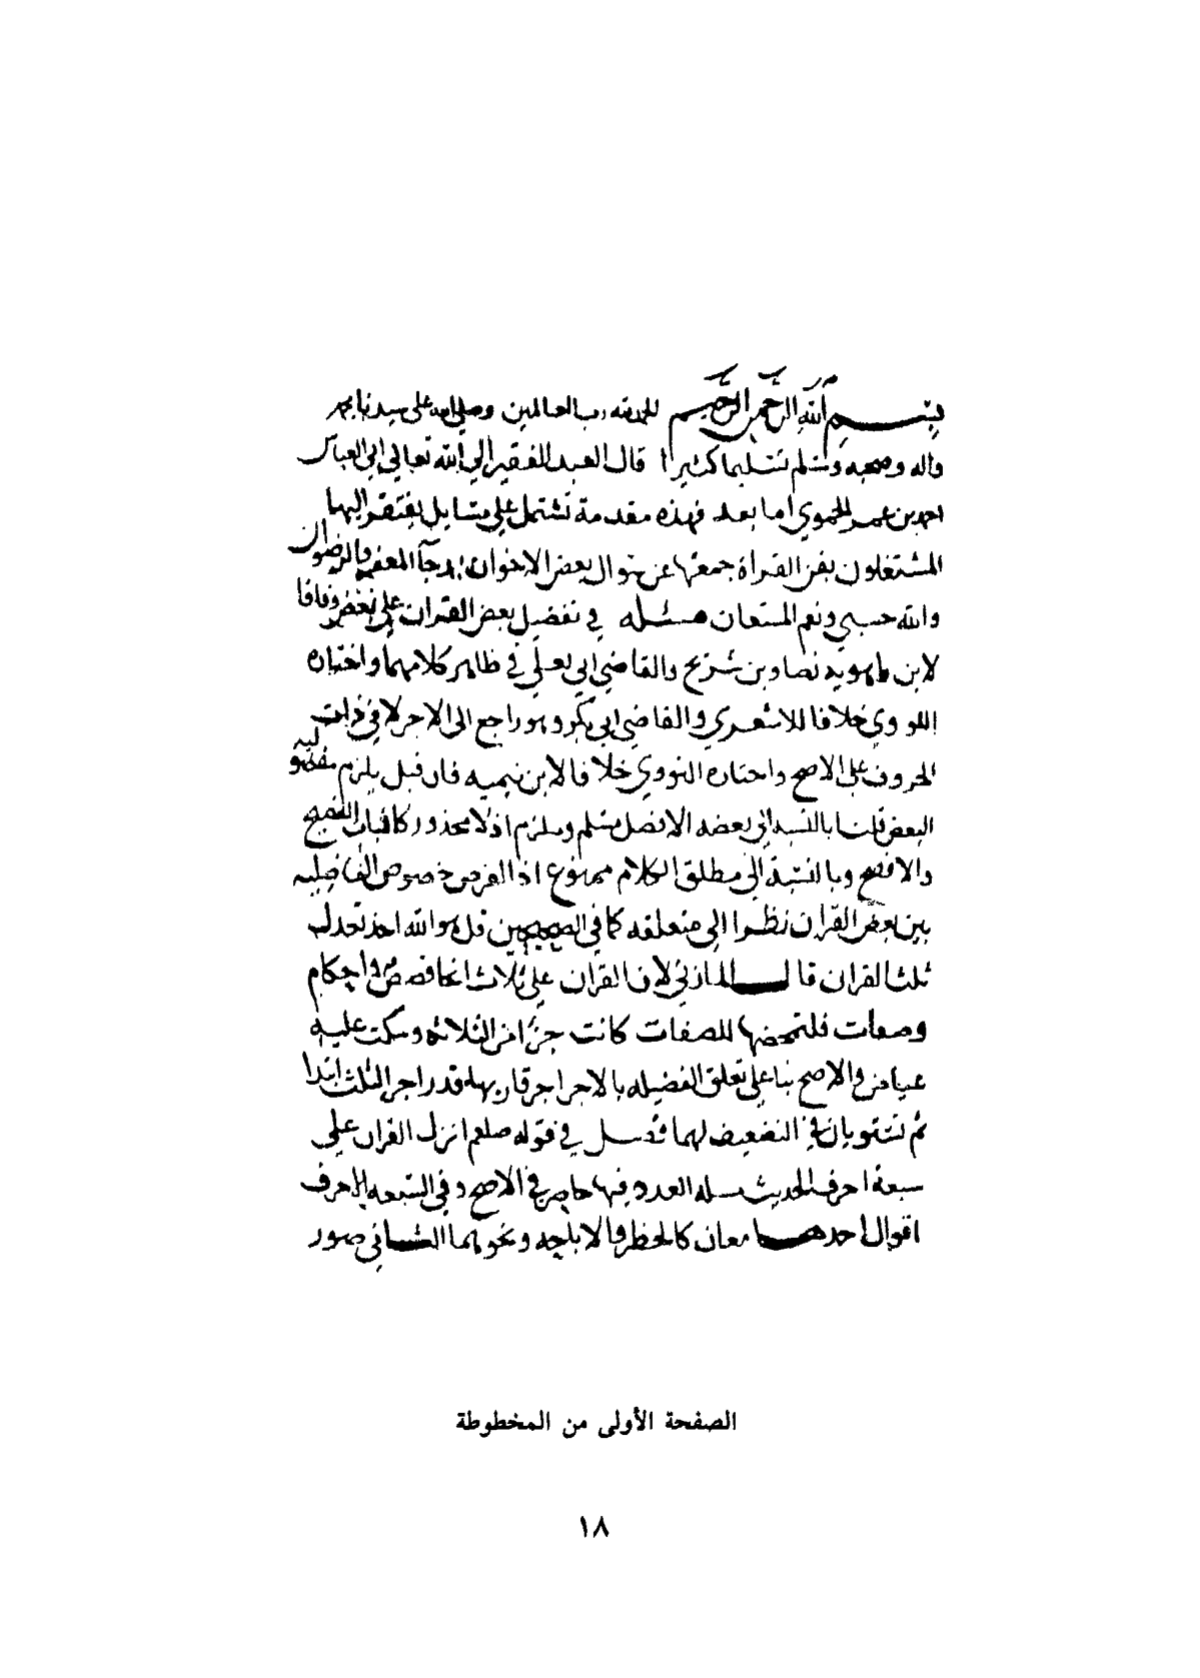 بسم الله الرحمن الرحيم الحمد لله رب العالمين وصلى الله على سيدنا محمد
واله وصحبه وسلم تسليما كثيرا قال العبد الفقير الى الله تعالى ابى العباس
احمد بن عمر الحموي اما بعد فهذه مقدمة تشتمل على مسايل يفتقر اليها
المشتغلون بفن القراة جمعتها عن سوال بعض الاخوان رجآ المغفرة والرضوان
والله حسبي ونعم المستعان مسئله في تفضيل بعض القران على بعض وفاقا
لابن شريح والقاضي ابى يعلى في ظاهر كلامهما واختاره
النووي خلافا للاشعري والقاضي ابى بكر وهو راجع الى الاجر لا في ذات
الحروف على الاصح واختاره النووي خلافا لابن تيميه فان قيل يلزم مفضوليه
البعض قلنا بالنسبه الى بعضه الافضل مسلم ويلزم اذ لا محذور كاثبات الفصيح
والافصح وبالنسبة الى مطلق الكلام ممنوع اذ الغرض خصوص الفاضليه
بين بعض القران نظرا الى متعلقه كما في الصحيحين قل هو الله احد تعدل
ثلث القران قال المازني لان القران على ثلاث انحا قصص واحكام
وصفات فلتمحضها للصفات كانت جزءا من الثلاثة وسكت عليه
عياض والاصح بنا على تعلق الفضيله بالاجر اجر قاريها قدر اجر الثلث ابتدا
ثم تستويان في التضعيف لهما فصل في قوله صلعم انزل القران على
سبعة احرف الحديث مسله العدد فيها حاصر في الاصح وفي السبعه الاحرف
اقوال احدها معان كالحظر والاباحه ونحوهما الثاني صور
الصفحة الأولى من المخطوطة
١٨